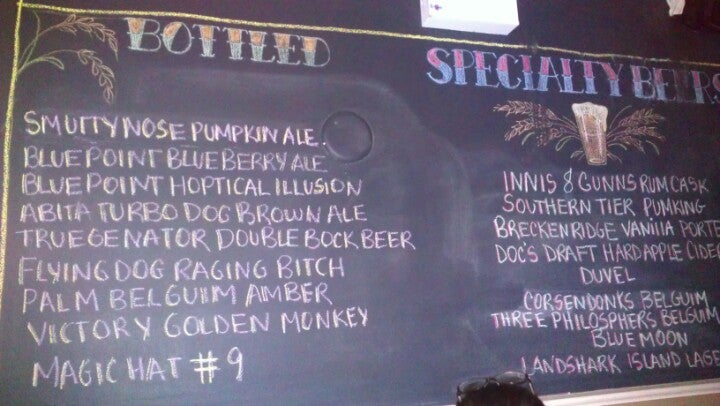 BOTTLED
SMUTTYNOSE PUMPKIN ALE
BLUE POINT BLUEBERRY ALE
BLUE POINT HOPTICAL ILLUSION
ABITA TURBO DOG BROWN ALE
TRUEGENATOR DOUBLE BOCK BEER
FLYING DOG RAGING BITCH
PALM BELGUIM AMBER
VICTORY GOLDEN MONKEY
MAGIC HAT #9
SPECIALTY BEERS
INNIS & GUNNS RUM CASK
SOUTHERN TIER PUMKING
BRECKENRIDGE VANILLA PORTE
DOC'S DRAFT HARD APPLE CIDE
DUVEL
CORSENDONKS BELGUIM
THREE PHILOSPHERS BELGUIM
BLUE MOON
LANDSHARK ISLAND LAGE